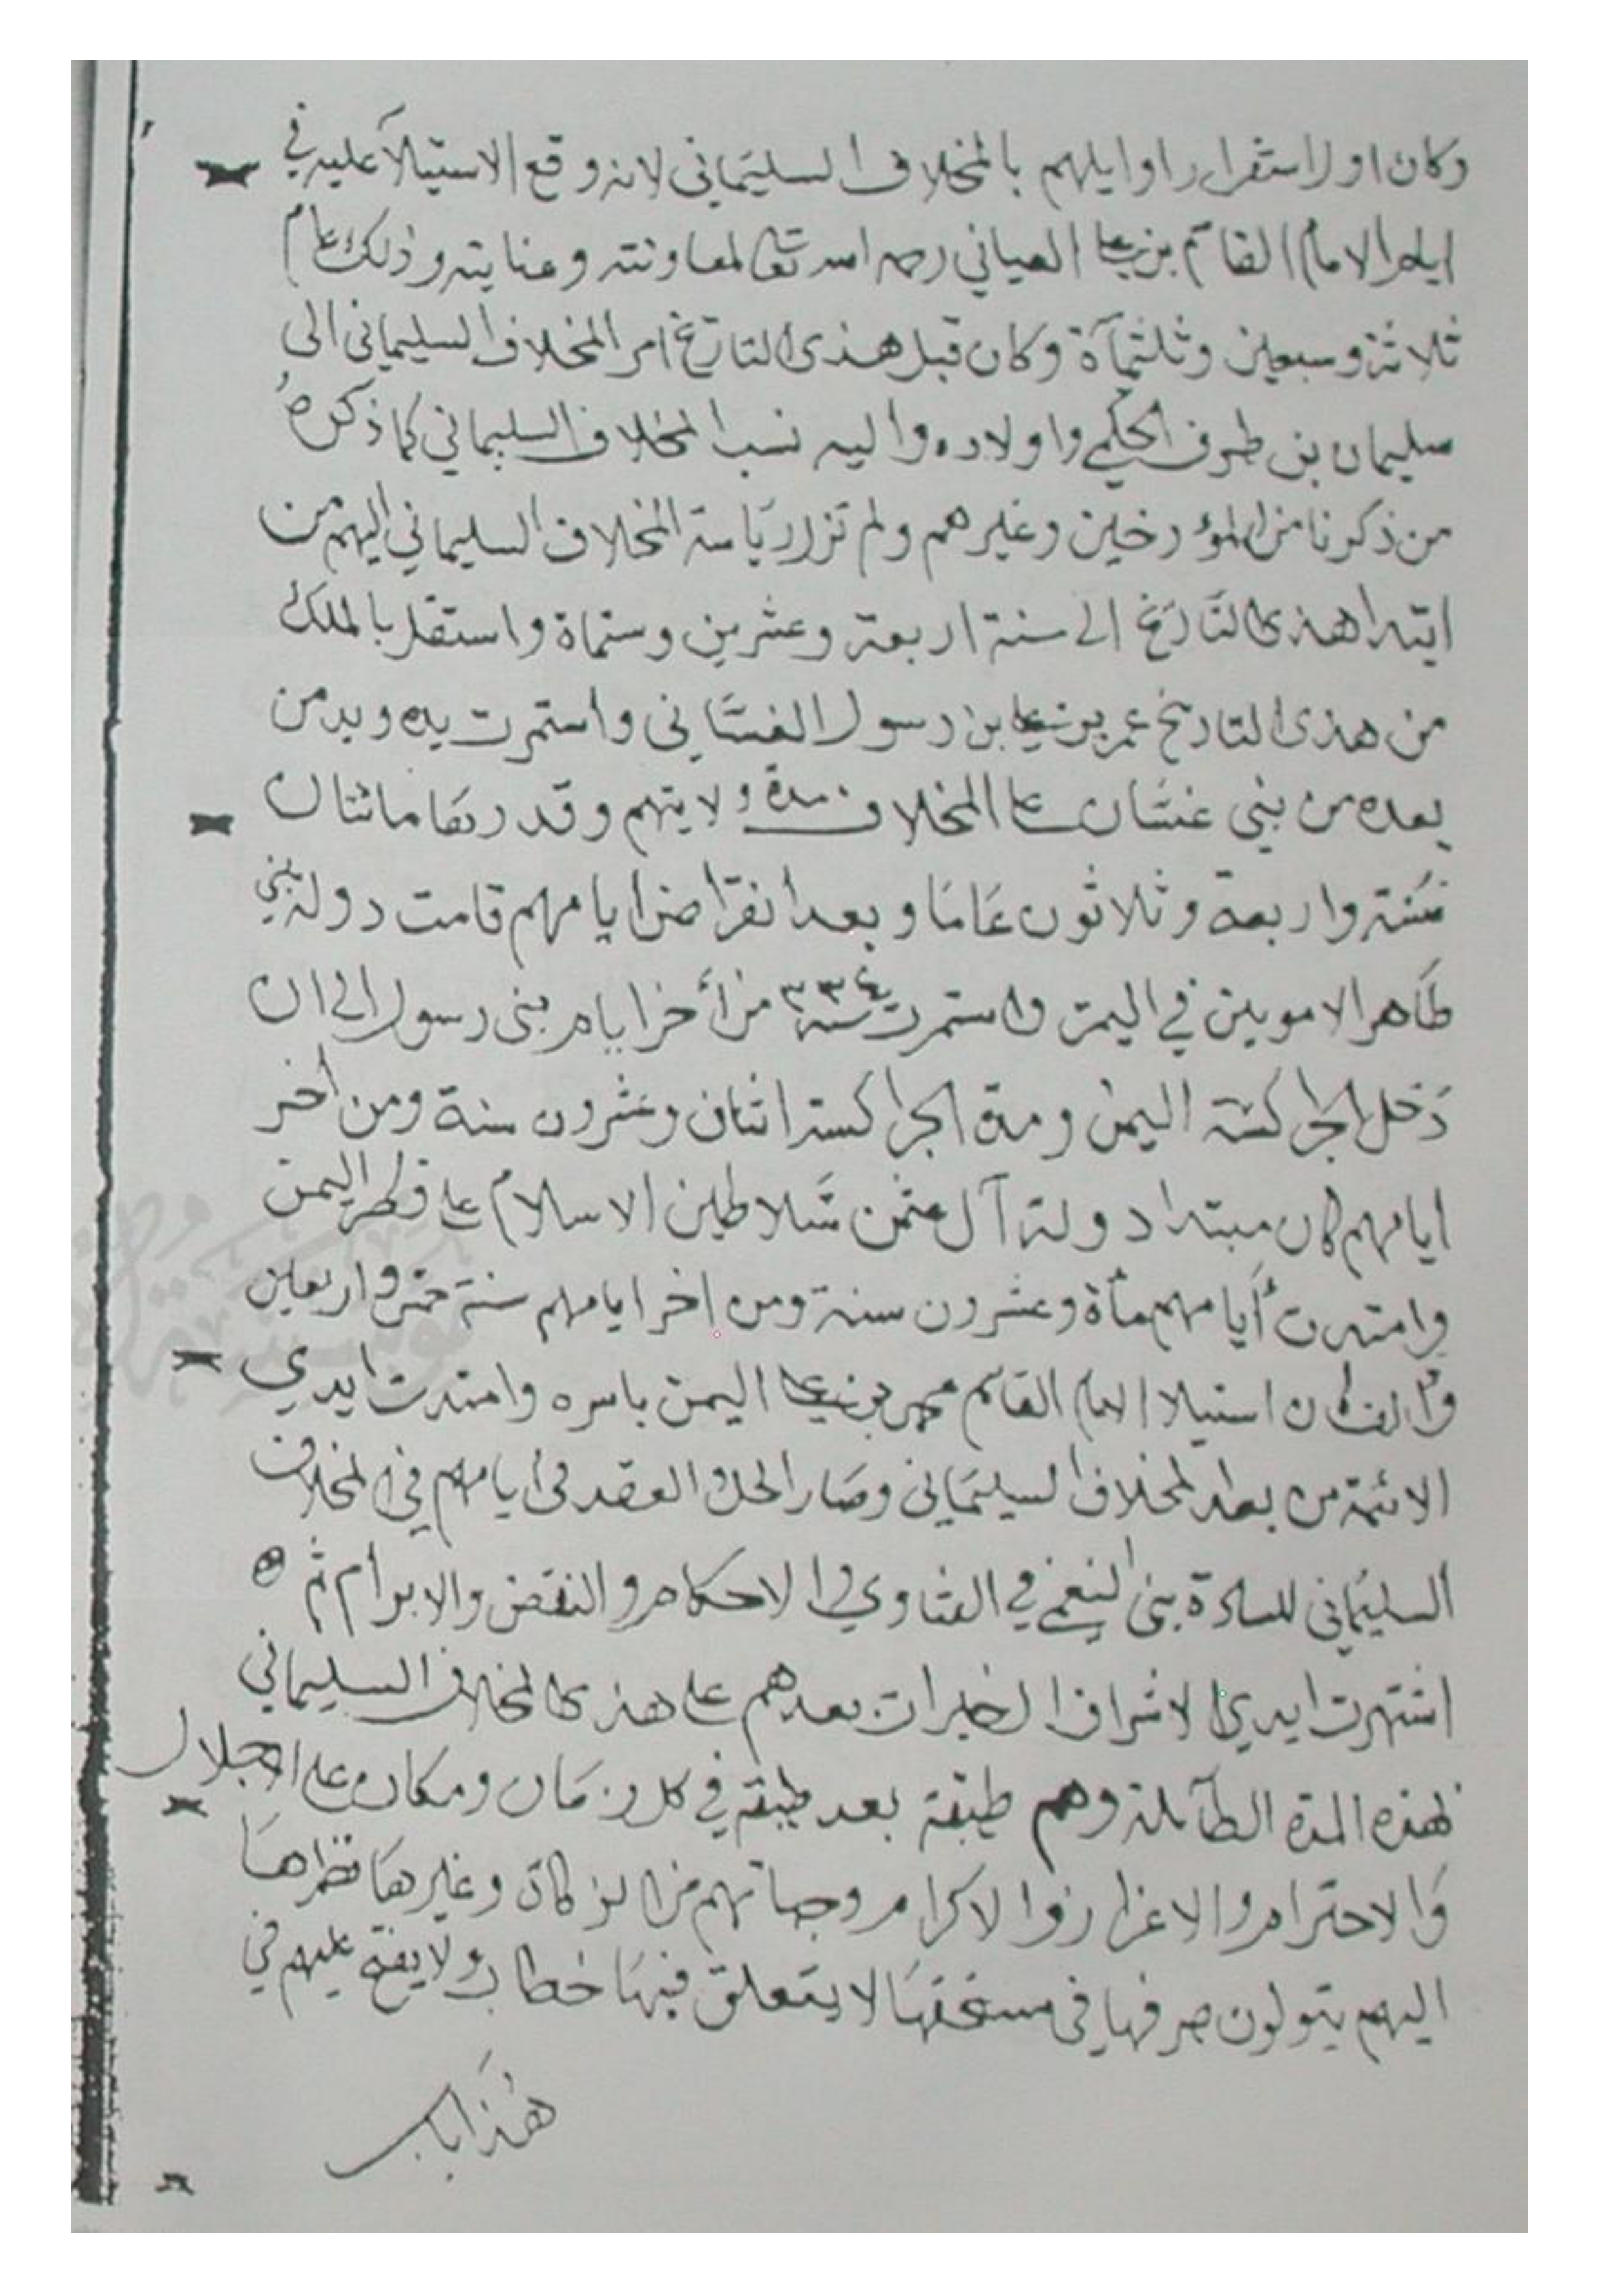 وكان اول استقرار اوايلهم بالمخلاف السليماني لانه وقع الاستيلآ عليه في
ايام الامام القاسم بن علي العياني رحمه الله تعالى لمعاونته وعنايته وذلك عام
ثلاثة وسبعين وثلثمآة وكان قبل هذى التاريخ امر المخلاف السليماني الى
سليمان بن طرف الحكمي واولاده واليه نسب المخلاف السليماني كما ذكره
من ذكرنا من المؤرخين وغيرهم ولم تزل رياسة المخلاف السليماني اليهم من
ابتدا هذى التاريخ الى سنة اربعة وعشرين وستماة واستقل بالملك
من هذى التاريخ عمر بن علي بن رسول الغساني واستمرت يده ويد من
بعده من بني غسان على المخلاف مدة ولايتهم وقدرها مائتان
سنة واربعة وثلاثون عامًا وبعد انقراض ايامهم قامت دولة بني
طاهر الامويين في اليمن واستمرت سنة ٣٣٤ من أخر ايام بني رسول الى ان
دخل الجراكسة اليمن ومدة الجراكسة اثنان وعشرون سنة ومن أخر
ايامهم كان مبتدا دولة آل عثمن سلاطين الاسلام على قطر اليمن
وامتدت أيامهم مأة وعشرون سنة ومن اخر ايامهم سنة خمس واربعين
والف كان استيلا الامام القاسم محمد بن علي اليمن باسره وامتدت ايدي
الائمة من بعد المخلاف السليماني وصار الحل والعقد في ايامهم في المخلاف
السليماني للسادة بني النعمي في الفتاوي والاحكام والنقض والابرام ثم
اشتهرت ايدي الاشراف الخيرات بعدهم على هذى المخلاف السليماني
لهذه المدة الطآئلة وهم طبقة بعد طبقة في كل زمان ومكان على الاجلال
والاحترام والاعزاز والاكرام وجباتهم من الزكاة وغيرها نظرها
اليهم يتولون صرفها في مستحقها لا يتعلق فيها خطاب ولا يفتح عليهم في
هذا باب